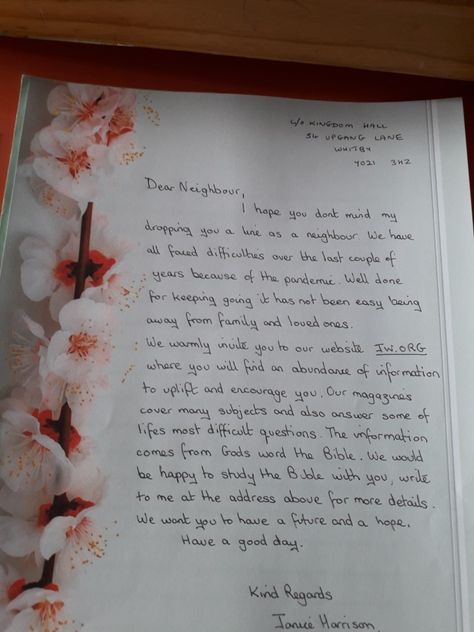 c/o KINGDOM HALL
54 UPGANG LANE
WHITBY
YO21 3HZ
Dear Neighbour,
I hope you dont mind my
dropping you a line as a neighbour. We have
all faced difficulties over the last couple of
years because of the pandemic. Well done
for keeping going it has not been easy being
away from family and loved ones.
We warmly invite you to our website JW.ORG
where you will find an abundance of information
to uplift and encourage you. Our magazines
cover many subjects and also answer some of
lifes most difficult questions. The information
comes from Gods word the Bible. We would
be happy to study the Bible with you, write
to me at the address above for more details.
We want you to have a future and a hope.
Have a good day.
Kind Regards
Janice Harrison